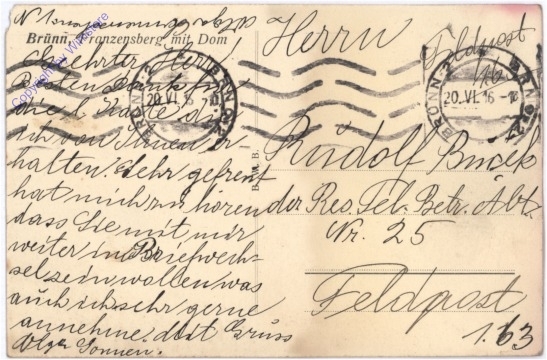 Brünn, Franzensberg mit Dom
Geehrter Herr
Besten Dank für
die Karte die
ich von Ihnen er-
halten. Sehr gefreut
hat mich zu hören
dass Sie mit mir
weiter in Briefwech-
sel sein wollen was
auch ich sehr gerne
annehme. Mit Gruss
Olga
Herrn
Feldpost
Rudolf
der Res. Tel. Betr. Abt.
Nr. 25
Feldpost
163
BRÜNN 2 BRNO 2
20.VI.16
BRÜNN 2 BRNO 2
20.VI.16
B. W. B.
Copyright by